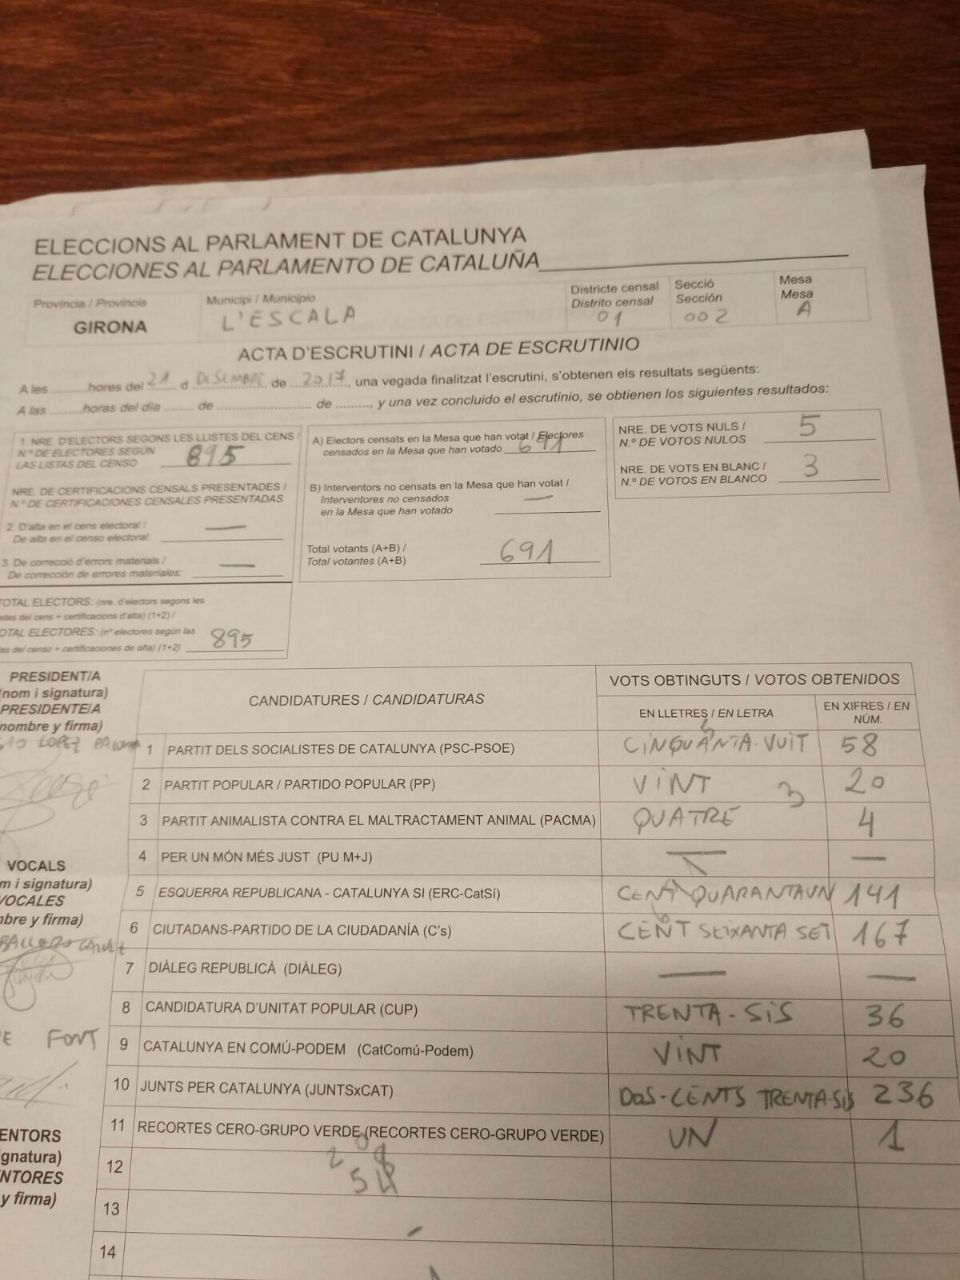 ELECCIONS AL PARLAMENT DE CATALUNYA
ELECCIONES AL PARLAMENTO DE CATALUÑA
Província / Provincia
GIRONA
Municipi / Municipio
L'ESCALA
Districte censal
Distrito censal
01
Secció
Sección
002
Mesa
Mesa
A
ACTA D'ESCRUTINI / ACTA DE ESCRUTINIO
A les ......... hores del 21 d DESEMBRE de 2017, una vegada finalitzat l'escrutini, s'obtenen els resultats següents:
A las ......... horas del día ....... de ................. de ........., y una vez concluido el escrutinio, se obtienen los siguientes resultados:
1. NRE. D'ELECTORS SEGONS LES LLISTES DEL CENS /
N.º DE ELECTORES SEGÚN
LAS LISTAS DEL CENSO 895
NRE. DE CERTIFICACIONS CENSALS PRESENTADES /
N.º DE CERTIFICACIONES CENSALES PRESENTADAS
2. D'alta en el cens electoral /
De alta en el censo electoral: —
3. De correcció d'errors materials /
De corrección de errores materiales: —
TOTAL ELECTORS: (nre. d'electors segons les
stes del cens + certificacions d'alta) (1+2) /
OTAL ELECTORES: (nº electores según las
as del censo + certificaciones de alta) (1+2) 895
A) Electors censats en la Mesa que han votat / Electores
censados en la Mesa que han votado 691
B) Interventors no censats en la Mesa que han votat /
Interventores no censados
en la Mesa que han votado —
Total votants (A+B) /
Total votantes (A+B) 691
NRE. DE VOTS NULS /
N.º DE VOTOS NULOS 5
NRE. DE VOTS EN BLANC /
N.º DE VOTOS EN BLANCO 3
PRESIDENT/A
(nom i signatura)
PRESIDENTE/A
nombre y firma)
LOPEZ
VOCALS
m i signatura)
VOCALES
mbre y firma)
FONT
ENTORS
gnatura)
NTORES
y firma)
CANDIDATURES / CANDIDATURAS
VOTS OBTINGUTS / VOTOS OBTENIDOS
EN LLETRES / EN LETRA
EN XIFRES / EN NÚM.
1 PARTIT DELS SOCIALISTES DE CATALUNYA (PSC-PSOE) CINQUANTA-VUIT 58
2 PARTIT POPULAR / PARTIDO POPULAR (PP) VINT 20
3
3 PARTIT ANIMALISTA CONTRA EL MALTRACTAMENT ANIMAL (PACMA) QUATRE 4
4 PER UN MÓN MÉS JUST (PU M+J) — —
5 ESQUERRA REPUBLICANA - CATALUNYA SI (ERC-CatSí) CENT QUARANTAUN 141
6 CIUTADANS-PARTIDO DE LA CIUDADANÍA (C's) CENT SEIXANTA SET 167
7 DIÀLEG REPUBLICÀ (DIÀLEG) — —
8 CANDIDATURA D'UNITAT POPULAR (CUP) TRENTA-SIS 36
9 CATALUNYA EN COMÚ-PODEM (CatComú-Podem) VINT 20
10 JUNTS PER CATALUNYA (JUNTSxCAT) DOS-CENTS TRENTA-SIS 236
11 RECORTES CERO-GRUPO VERDE (RECORTES CERO-GRUPO VERDE) UN 1
12
13
14